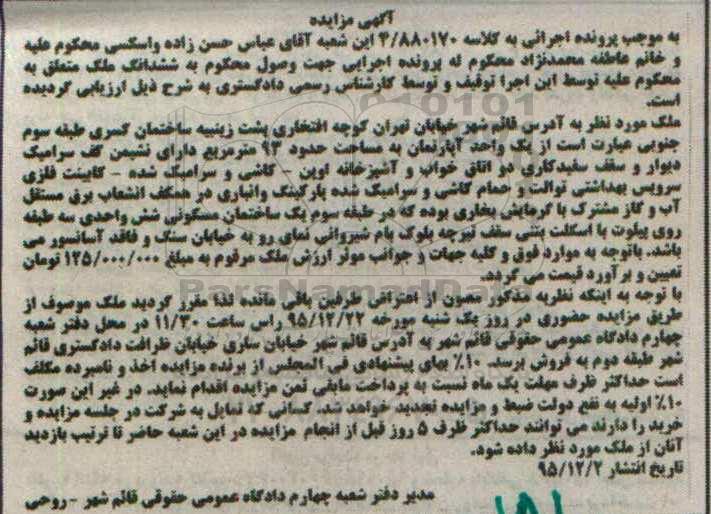 آگهی مزایده
به موجب پرونده اجرائی به کلاسه ۳/۸۸۰۱۷۰ این شعبه آقای عباس حسن زاده واسکسی محکوم علیه
و خانم عاطفه محمدنژاد محکوم له پرونده اجرایی جهت وصول محکوم به ششدانگ ملک متعلق به
محکوم علیه توسط این اجرا توقیف و توسط کارشناس رسمی دادگستری به شرح ذیل ارزیابی گردیده
است.
ملک مورد نظر به آدرس قائم شهر خیابان تهران کوچه افتخاری پشت زینبیه ساختمان کسری طبقه سوم
جنوبی عبارت است از یک واحد آپارتمان به مساحت حدود ۹۳ مترمربع دارای نشیمن کف سرامیک
دیوار و سقف سفیدکاری دو اتاق خواب و آشپزخانه اوپن - کاشی و سرامیک شده - کابینت فلزی
سرویس بهداشتی توالت و حمام کاشی و سرامیک شده پارکینگ وانباری در همکف انشعاب برق مستقل
آب و گاز مشترک با گرمایش بخاری بوده که در طبقه سوم یک ساختمان مسکونی شش واحدی سه طبقه
روی پیلوت با اسکلت بتنی سقف تیرچه بلوک بام شیروانی نمای رو به خیابان سنگ و فاقد آسانسور می
باشد. باتوجه به موارد فوق و کلیه جهات و جوانب موثر ارزش ملک مرقوم به مبلغ ۱۲۵/۰۰۰/۰۰۰ تومان
تعیین و برآورد قیمت می گردد.
با توجه به اینکه نظریه مذکور مصون از اعتراض طرفین باقی مانده لذا مقرر گردید ملک موصوف از
طریق مزایده حضوری در روز یک شنبه مورخه ۹۵/۱۲/۲۲ راس ساعت ۱۱/۳۰ در محل دفتر شعبه
چهارم دادگاه عمومی حقوقی قائم شهر به آدرس قائم شهر خیابان ساری خیابان ظرافت دادگستری قائم
شهر طبقه دوم به فروش برسد. ۱۰٪ بهای پیشنهادی فی المجلس از برنده مزایده اخذ و نامبرده مکلف
است حداکثر ظرف مهلت یک ماه نسبت به پرداخت مابقی ثمن مزایده اقدام نماید. در غیر این صورت
۱۰٪ اولیه به نفع دولت ضبط و مزایده تجدید خواهد شد. کسانی که تمایل به شرکت در جلسه مزایده و
خرید را دارند می توانند حداکثر ظرف ۵ روز قبل از انجام مزایده در این شعبه حاضر تا ترتیب بازدید
آنان از ملک مورد نظر داده شود.
تاریخ انتشار ۹۵/۱۲/۲
مدیر دفتر شعبه چهارم دادگاه عمومی حقوقی قائم شهر - روحی
ParsNamadData